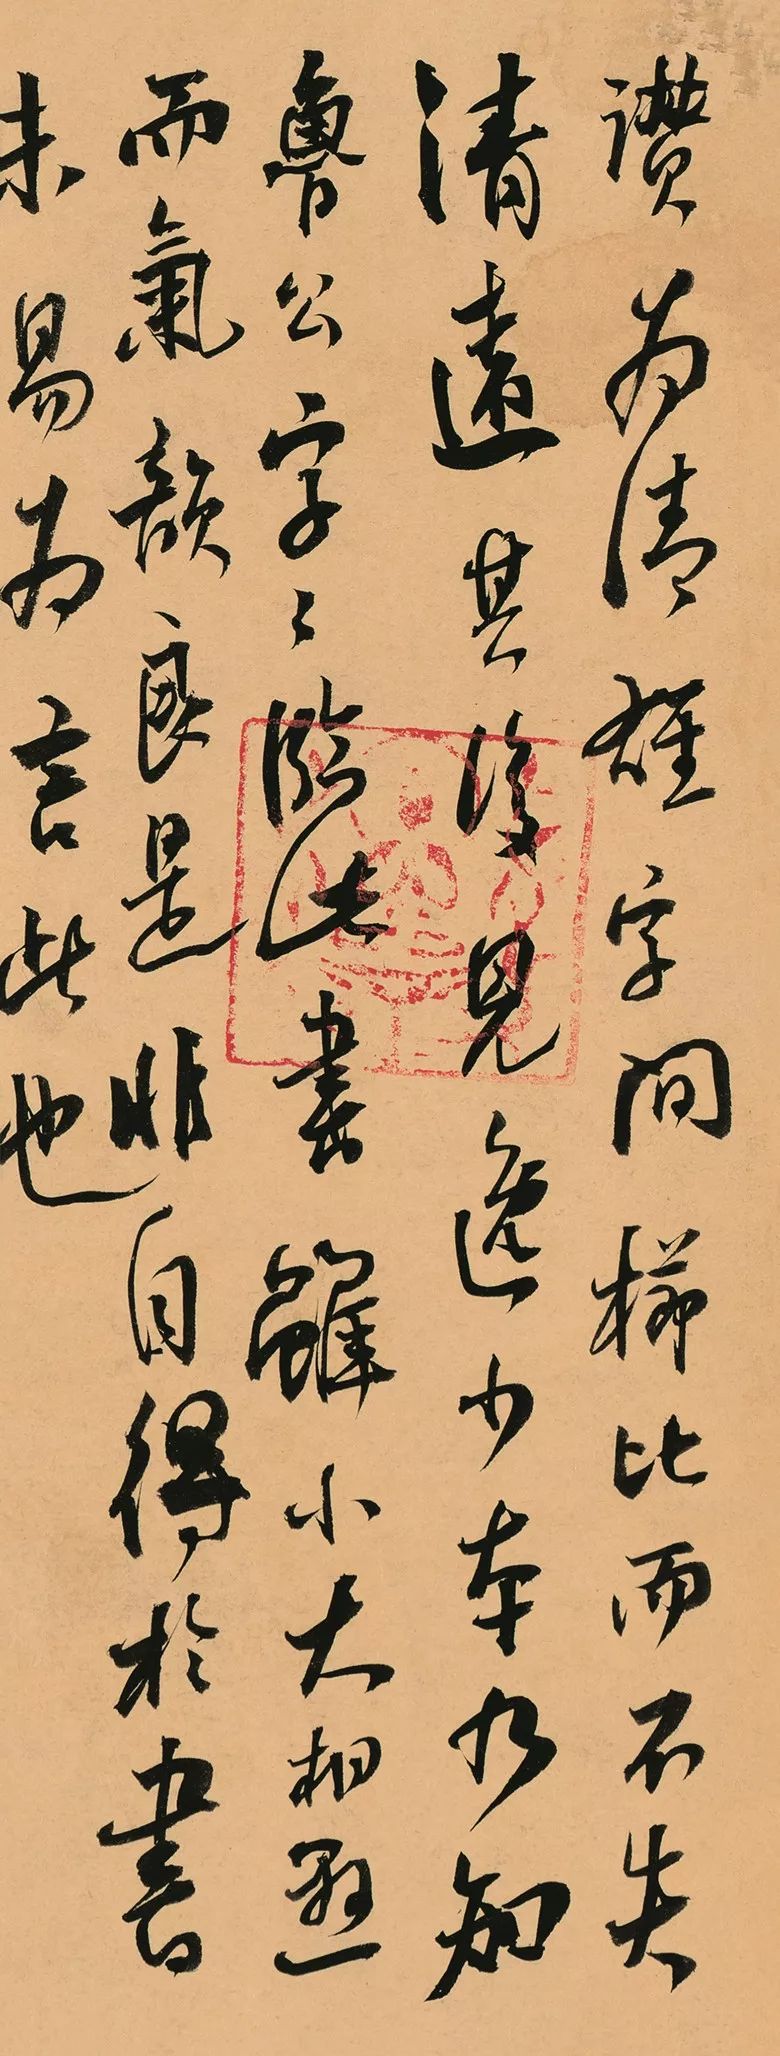 讚為清雄字間櫛比而不失
清遠其後見逸少本乃知
魯公字〻臨此書雖小大相懸
而氣韻良是非自得於書
未易為言此也